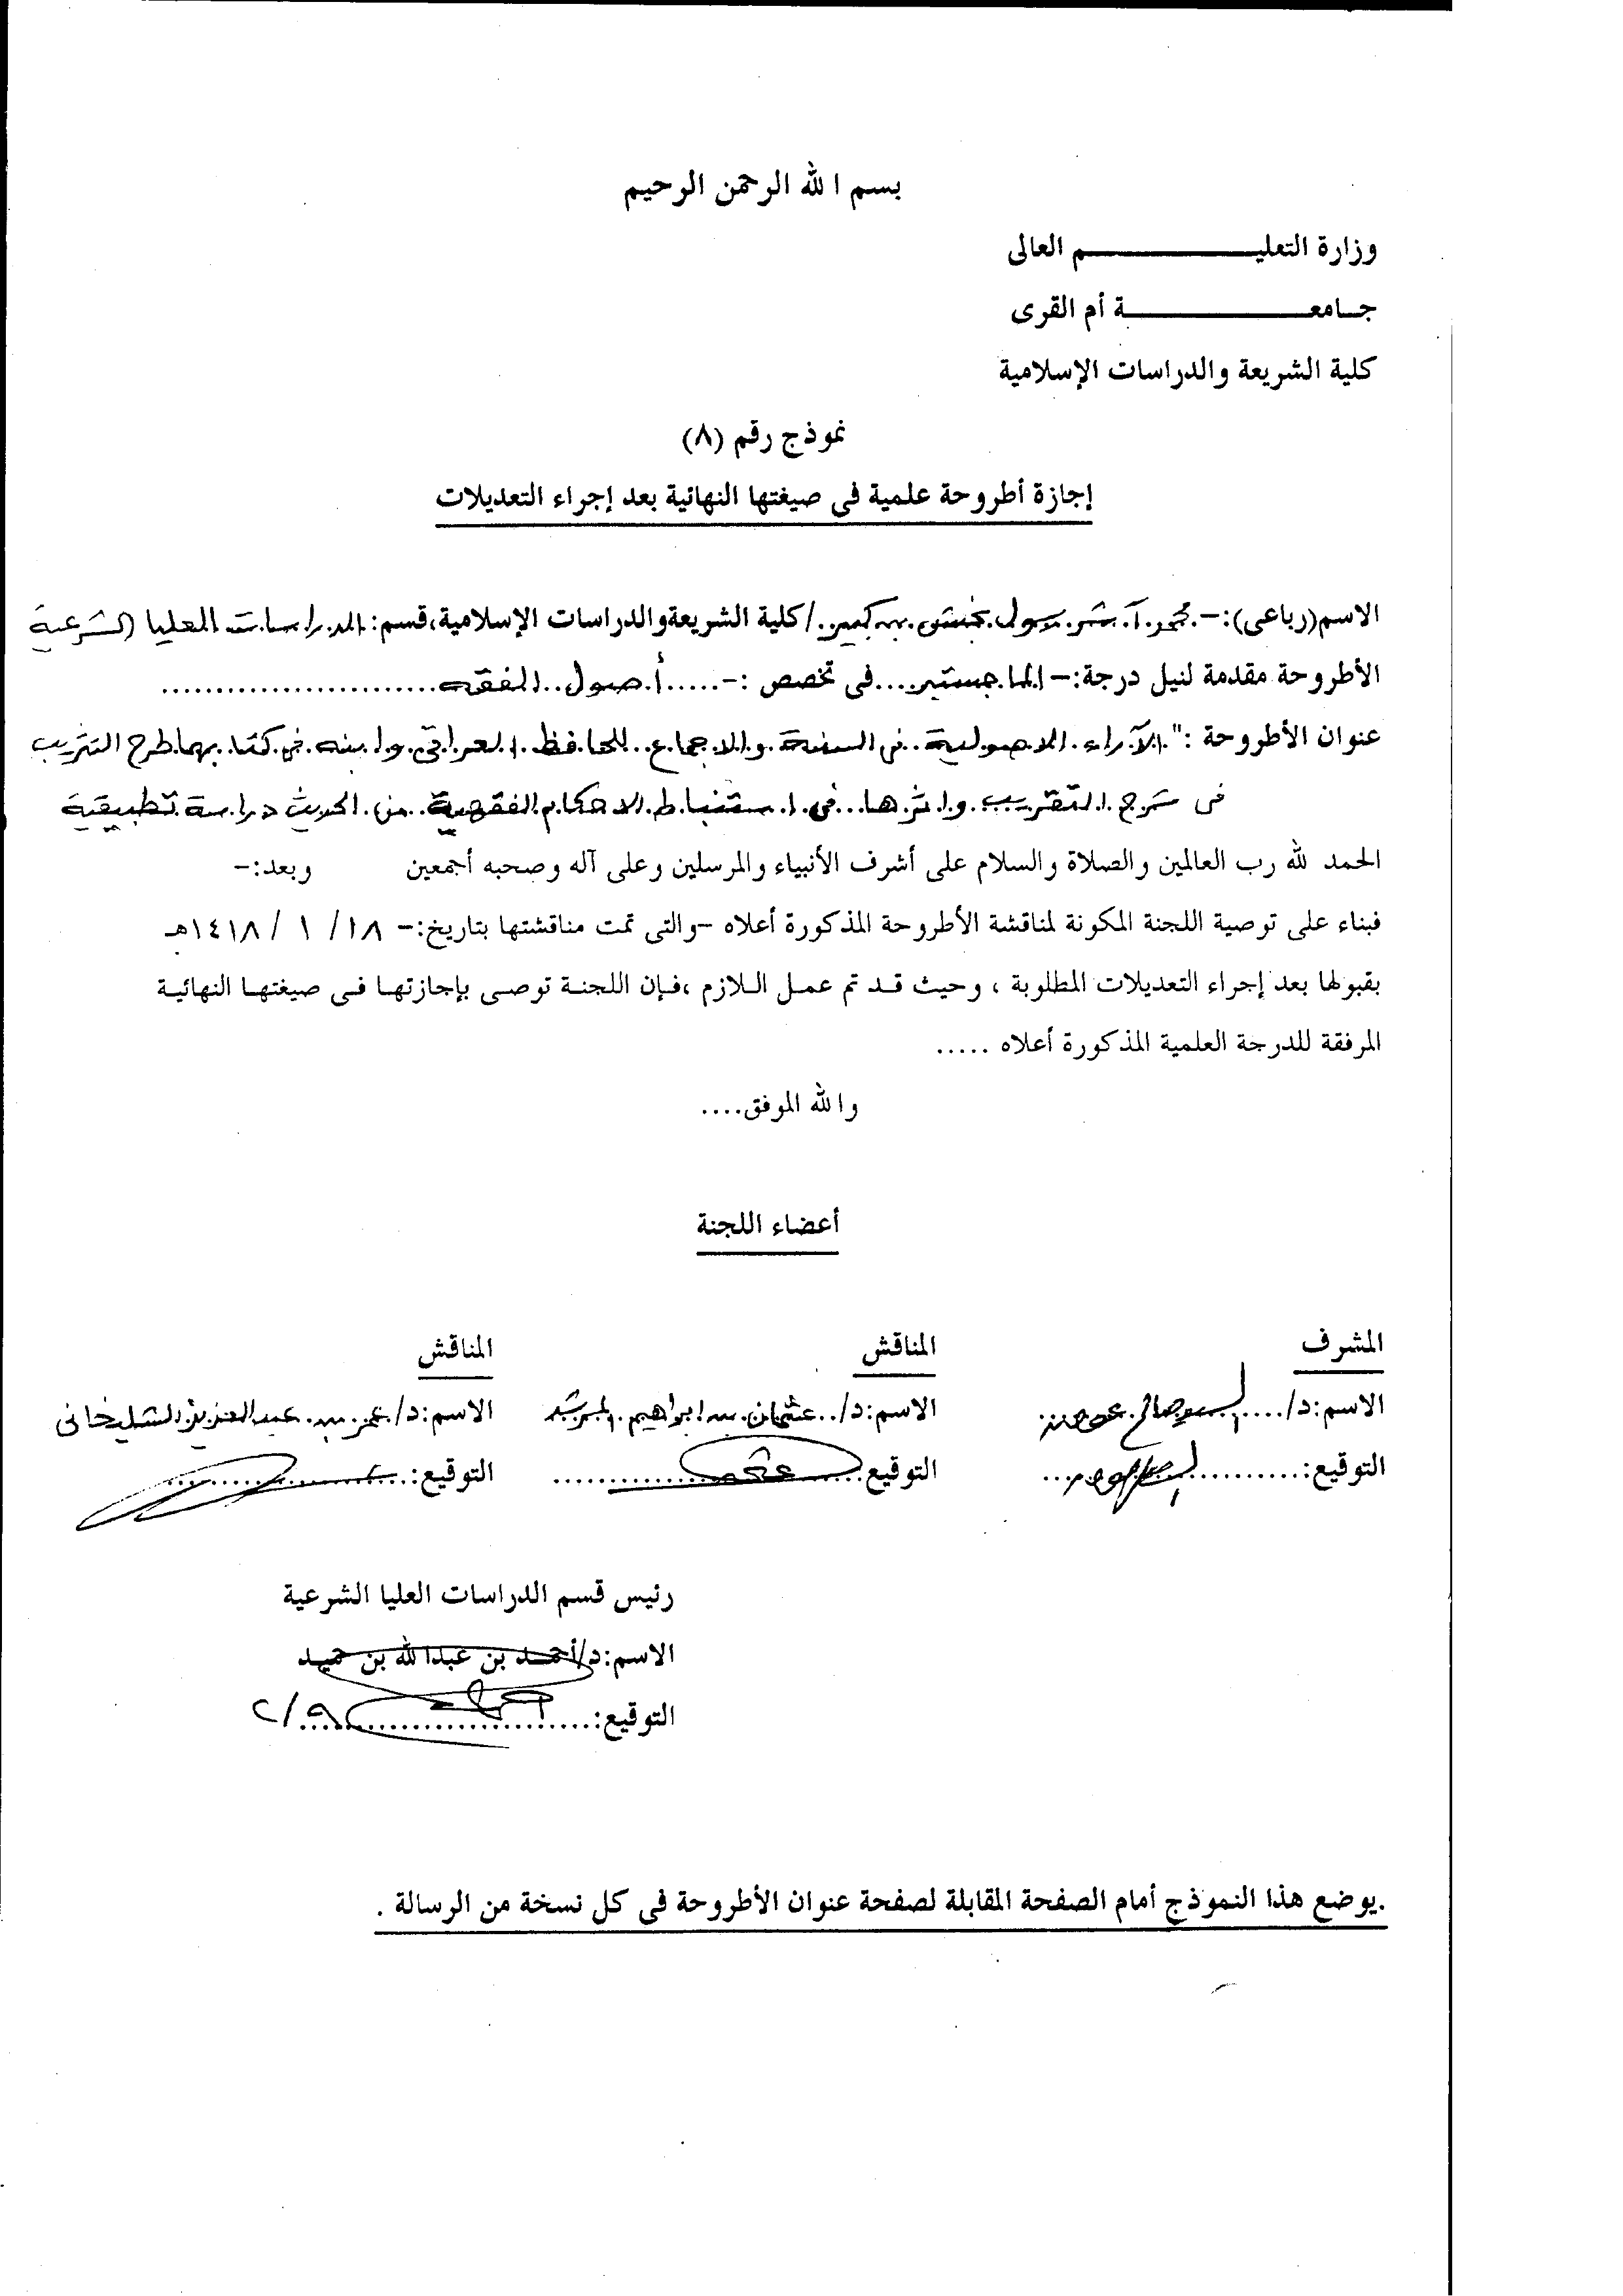 بسم الله الرحمن الرحيم
وزارة التعليم العالى
جامعة أم القرى
كلية الشريعة والدراسات الإسلامية
نموذج رقم (٨)
إجازة أطروحة علمية فى صيغتها النهائية بعد إجراء التعديلات
الاسم(رباعى):- محمد رسول بخش بن كبير/كلية الشريعة والدراسات الإسلامية،قسم: الدراسات العليا الشرعية
الأطروحة مقدمة لنيل درجة:- الماجستير....فى تخصص :-.....أصول الفقه
عنوان الأطروحة :" الآراء الاصولية فى السنة والاجماع للحافظ العراقى وابنه فى كتابهما طرح التثريب
فى شرح التقريب واثرها فى استنباط الاحكام الفقهية من الحديث دراسة تطبيقية
الحمد لله رب العالمين والصلاة والسلام على أشرف الأنبياء والمرسلين وعلى آله وصحبه أجمعين وبعد:-
فبناء على توصية اللجنة المكونة لمناقشة الأطروحة المذكورة أعلاه -والتى تمت مناقشتها بتاريخ:- ١٨/ ١ / ١٤١٨هـ
بقبولها بعد إجراء التعديلات المطلوبة ، وحيث قد تم عمل اللازم ،فإن اللجنة توصى بإجازتها فى صيغتها النهائية
المرفقة للدرجة العلمية المذكورة أعلاه .....
والله الموفق....
أعضاء اللجنة
المشرف المناقش المناقش
الاسم:د/.... صالح الاسم:د/..عثمان بن ابراهيم المرشد الاسم:د/عمر بن عبد العزيز الشليخانى
التوقيع: التوقيع: التوقيع:
رئيس قسم الدراسات العليا الشرعية
الاسم:د/أحمد بن عبدالله بن حميد
التوقيع: ٢/٩
.يوضع هذا النموذج أمام الصفحة المقابلة لصفحة عنوان الأطروحة فى كل نسخة من الرسالة .